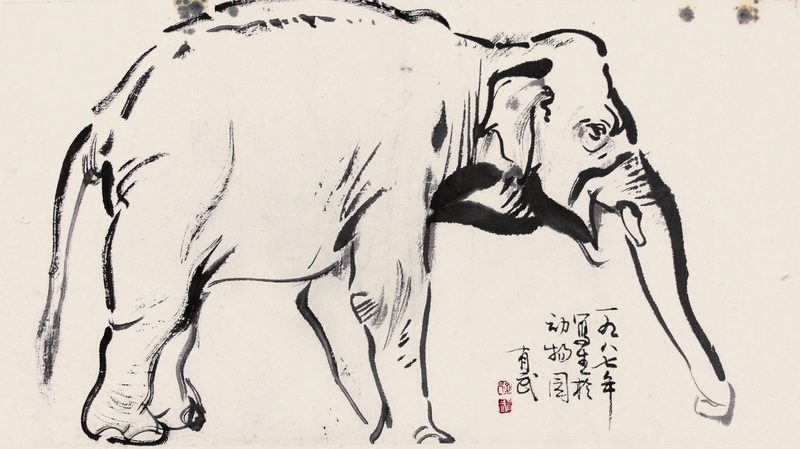 一九八七年
写生於
动物园
有武